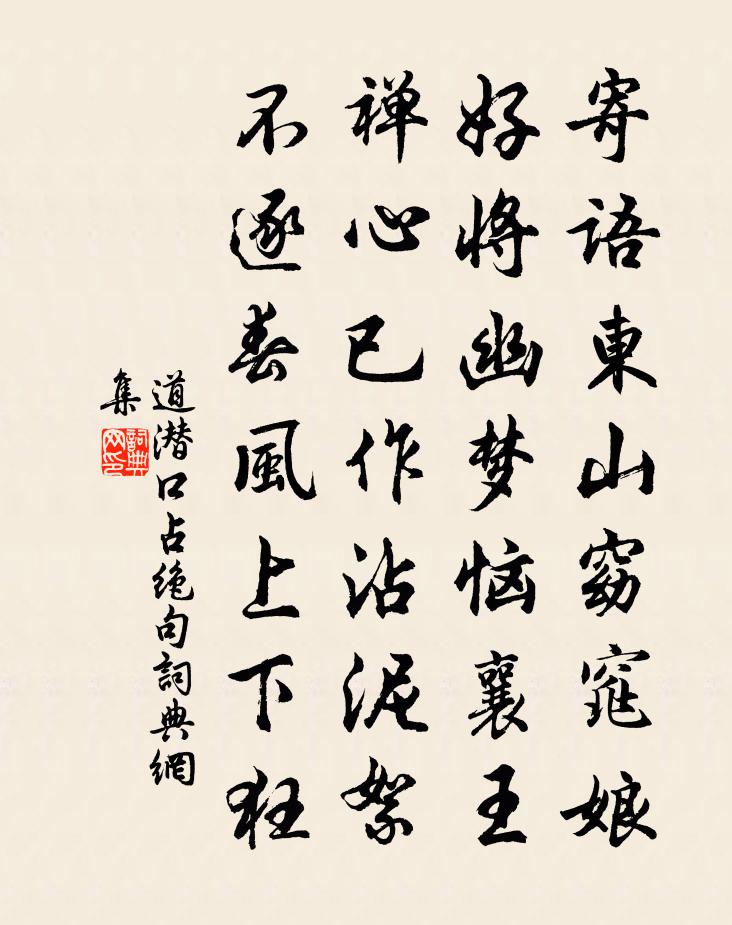 寄語東山窈窕娘
好將幽梦恼襄王
禅心已作沾泥絮
不逐春風上下狂
道潜口占绝句詞典網
集
詞典网印